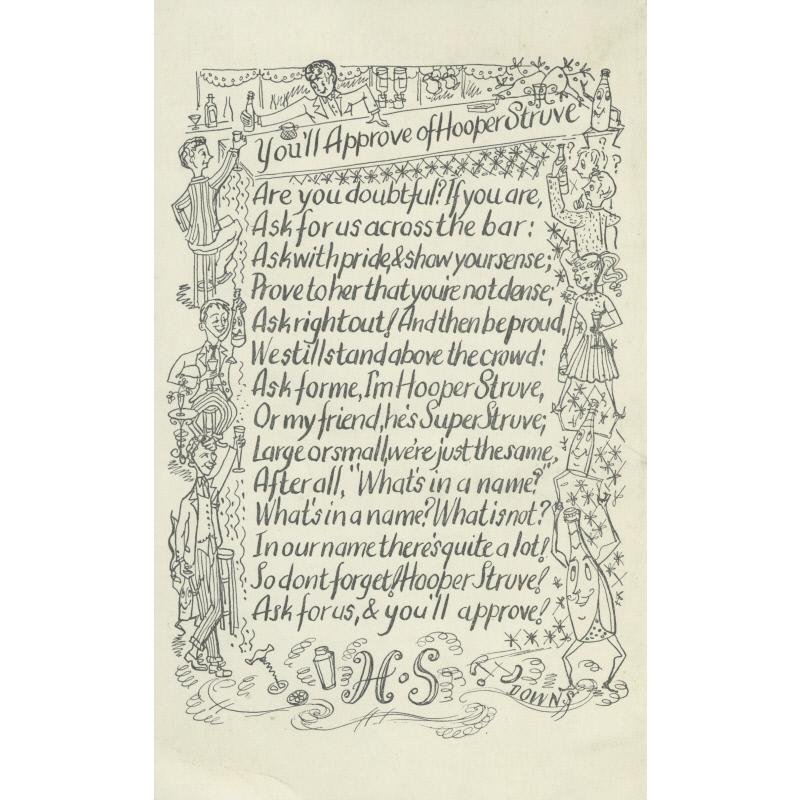 You'll Approve of Hooper Struve
Are you doubtful? If you are,
Ask for us across the bar:
Ask with pride, & show your sense;
Prove to her that you're not dense;
Ask right out! And then be proud,
We still stand above the crowd:
Ask for me, I'm Hooper Struve,
Or my friend, he's Super Struve;
Large or small, we're just the same,
After all, "What's in a name?"
What's in a name? What is not?
In our name there's quite a lot!
So dont forget! Hooper Struve!
Ask for us, & you'll approve!
H·S
DOWNS.